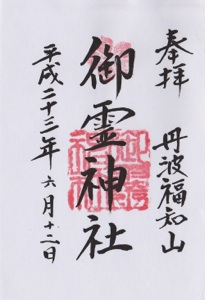 奉拝
丹波福知山
御霊神社
平成二十三年六月十二日